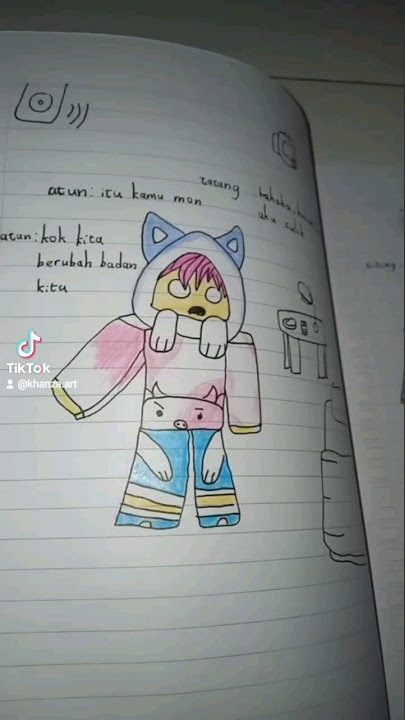 atun: itu kamu mon
tatang
atun: kok kita
berubah badan
kita
TikTok
@khanza.art